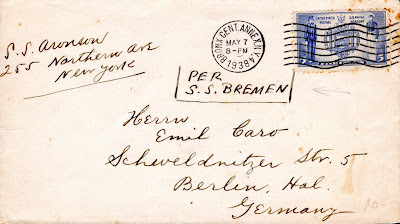 S.S. Aronson
255 Northern Ave
New York
BRONX CENT. ANNEX, N.Y.
MAY 7
8-PM
1938
PER
S.S. BREMEN
Herrn
Emil Caro
Scheveldnitzer Str. 5
Berlin, Hal.
Germany
5
5